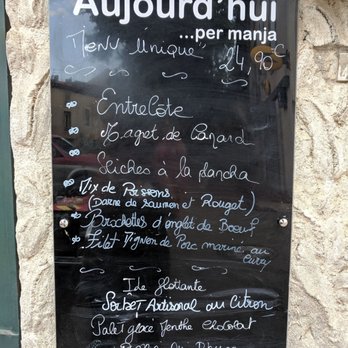 Aujourd'hui
...per manja
Menu Unique 24,90€
Entrecôte
Magret de Canard
Seiches à la plancha
Mix de Poissons
(Darne de Saumon et Rouget)
Brochettes d'onglet de Boeuf
Filet Mignon de Porc mariné au
Curry
Ile flottante
Sorbet Artisanal au Citron
Palet glacé Menthe Chocolat